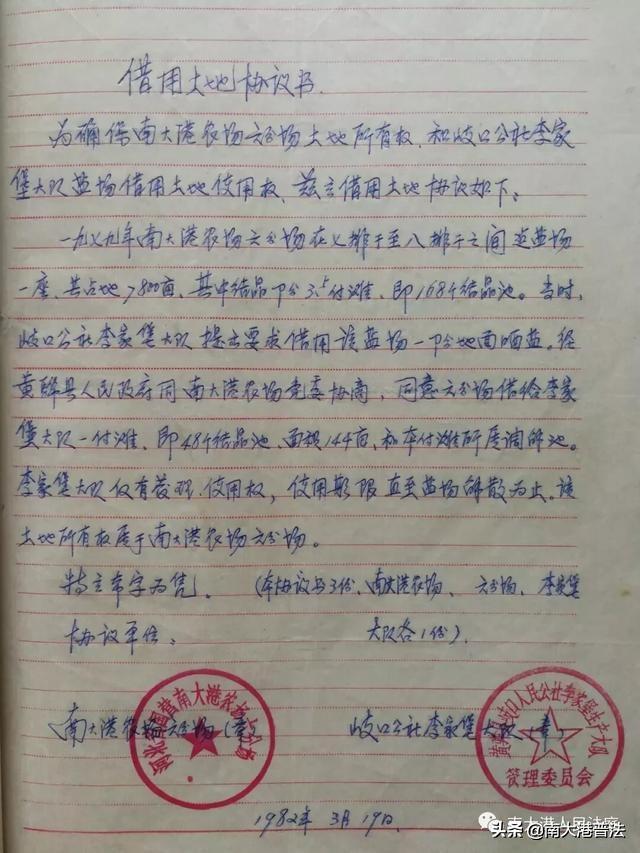 借用土地协议书
为确保南大港农场六分场土地所有权,和岐口公社李家
堡大队盐场借用土地使用权,兹立借用土地协议如下:
一九七九年南大港农场六分场在七排干至八排干之间建盐场
一座,共占地7800亩,其中结晶部分3.5付滩,即168个结晶池。当时,
岐口公社李家堡大队提出要求借用该盐场一部分地面晒盐。经
黄骅县人民政府同南大港农场党委协商,同意六分场借给李家
堡大队一付滩,即48个结晶池,面积144亩,和本付滩所属调节池。
李家堡大队仅有管理、使用权,使用期限直至盐场解散为止。该
土地所有权属于南大港农场六分场。
特立本字为凭。(本协议书3份,南大港农场、六分场、李家堡
大队各1份)。
协议单位:
南大港农场六分场(章)
岐口公社李家堡大队(章)
国营南大港农场六分场
岐口人民公社李家堡生产大队
管理委员会
1982年3月19日.
南大港人民法庭
头条@南大港普法